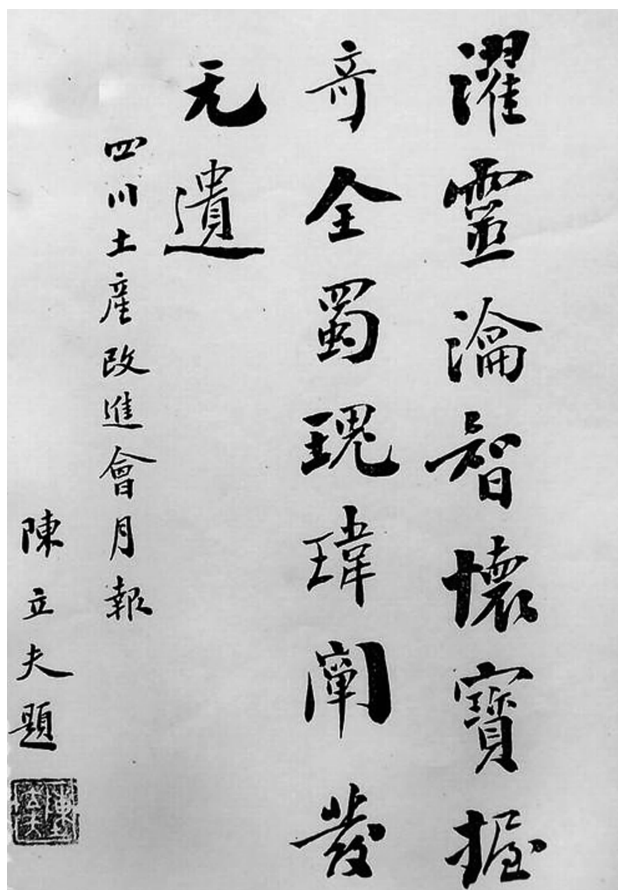 濯靈瀹智懷寶握
奇全蜀瑰瑋闡發
无遺
四川土產改進會月報
陳立夫題
陳立夫